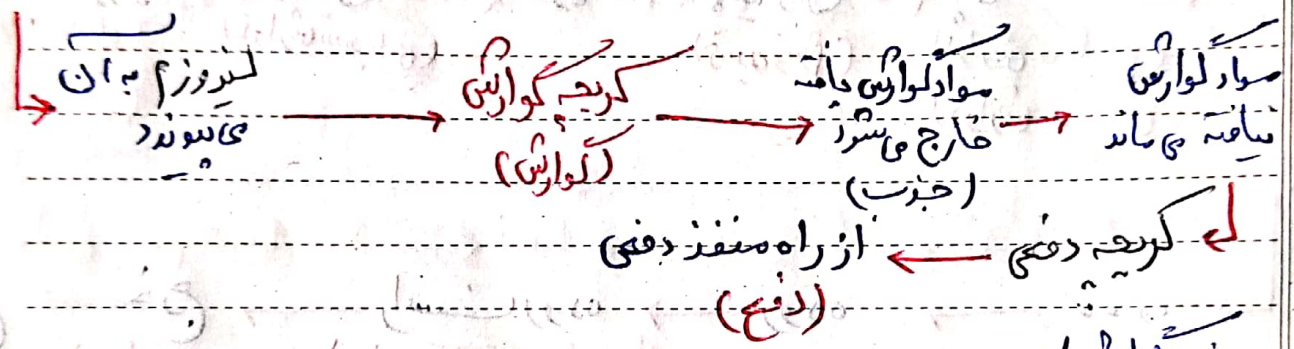 لیزوزوم به آن می‌پیوندد → کریچه گوارشی (گوارش) → مواد گوارش یافته خارج می‌شود (جذب) → مواد گوارش نیافته می‌ماند
کریچه دفعی ← از راه منفذ دفعی (دفع)